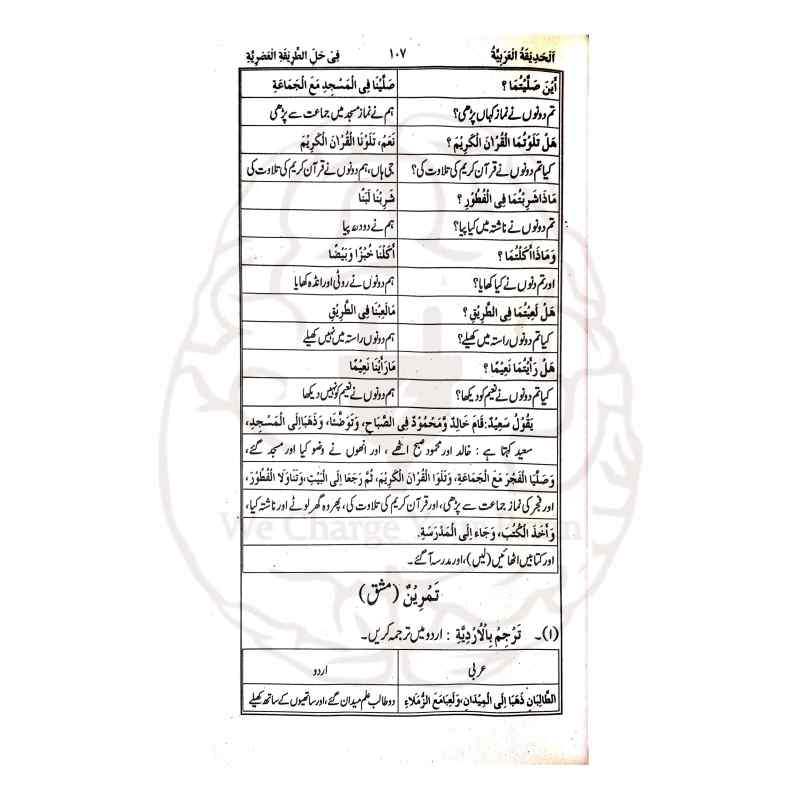 اَلْحَدِيْقَةُ الْعَرَبِيَّةُ ١٠٧ فِيْ حَلِّ الطَّرِيْقَةِ الْعَصْرِيَّةِ
أَيْنَ صَلَّيْتُمَا ؟ صَلَّيْنَا فِي الْمَسْجِدِ مَعَ الْجَمَاعَةِ
تم دونوں نے نماز کہاں پڑھی؟ ہم نے نماز مسجد میں جماعت سے پڑھی
هَلْ تَلَوْتُمَا الْقُرْاٰنَ الْكَرِيْمَ ؟ نَعَمْ، تَلَوْنَا الْقُرْاٰنَ الْكَرِيْمَ
کیا تم دونوں نے قرآن کریم کی تلاوت کی؟ جی ہاں، ہم دونوں نے قرآن کریم کی تلاوت کی
مَاذَا شَرِبْتُمَا فِي الْفُطُوْرِ ؟ شَرِبْنَا لَبَنًا
تم دونوں نے ناشتہ میں کیا پیا؟ ہم نے دودھ پیا
وَمَاذَا أَكَلْتُمَا ؟ أَكَلْنَا خُبْزًا وَبَيْضًا
اور تم دونوں نے کیا کھایا؟ ہم دونوں نے روٹی اور انڈہ کھایا
هَلْ لَعِبْتُمَا فِي الطَّرِيْقِ ؟ مَا لَعِبْنَا فِي الطَّرِيْقِ
کیا تم دونوں راستہ میں کھیلے؟ ہم دونوں راستہ میں نہیں کھیلے
هَلْ رَأَيْتُمَا نَعِيْمًا ؟ مَا رَأَيْنَا نَعِيْمًا
کیا تم دونوں نے نعیم کو دیکھا؟ ہم دونوں نے نعیم کو نہیں دیکھا
يَقُوْلُ سَعِيْدٌ: قَامَ خَالِدٌ وَّمَحْمُوْدٌ فِي الصَّبَاحِ، وَتَوَضَّئَا، وَذَهَبَا اِلَى الْمَسْجِدِ،
سعید کہتا ہے : خالد اور محمود صبح اٹھے ، اور انھوں نے وضو کیا اور مسجد گئے،
وَصَلَّيَا الْفَجْرَ مَعَ الْجَمَاعَةِ، وَتَلَوَا الْقُرْاٰنَ الْكَرِيْمَ، ثُمَّ رَجَعَا اِلَى الْبَيْتِ، وَتَنَاوَلَا الْفُطُوْرَ،
اور فجر کی نماز جماعت سے پڑھی، اور قرآن کریم کی تلاوت کی، پھر وہ گھر لوٹے اور ناشتہ کیا،
وَأَخَذَا الْكُتُبَ، وَجَاءَ اِلَى الْمَدْرَسَةِ.
اور کتابیں اٹھائیں (لیں)، اور مدرسہ آ گئے۔
تَمْرِيْنٌ (مشق)
(۱)۔ تَرْجِمْ بِالْاُرْدِيَّةِ : اردو میں ترجمہ کریں۔
عربی اردو
الطَّالِبَانِ ذَهَبَا اِلَى الْمِيْدَانِ، وَلَعِبَا مَعَ الزُّمَلَاءِ دو طالب علم میدان گئے، اور ساتھیوں کے ساتھ کھیلے